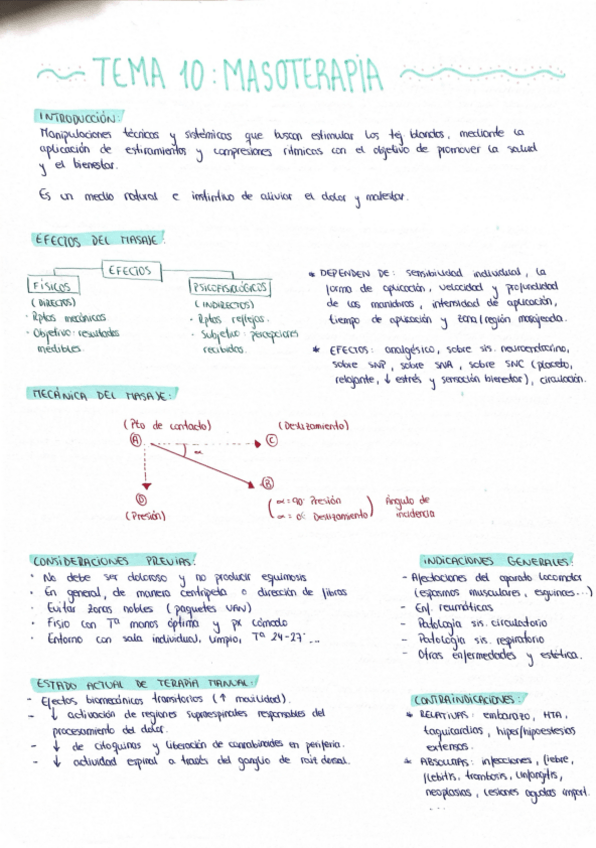 TEMA 10: MASOTERAPIA
INTRODUCCIÓN:
Manipulaciones técnicas y sistémicas que buscan estimular los tej blandos, mediante la
aplicación de estiramientos y compresiones rítmicas con el objetivo de promover la salud
y el bienestar.
Es un medio natural e instintivo de aliviar el dolor y malestar.
EFECTOS DEL MASAJE:
EFECTOS
FÍSICOS
(DIRECTOS)
· Rptas mecánicas
· Objetivo: resultados
medibles.
PSICOFISIOLÓGICOS
(INDIRECTOS)
· Rptas reflejas.
· Subjetivo: percepciones
recibidas.
* DEPENDEN DE: sensibilidad individual, la
forma de aplicación, velocidad y profundidad
de las maniobras, intensidad de aplicación,
tiempo de aplicación y zona/región masajeada.
* EFECTOS: analgésico, sobre sis. neuroendocrino,
sobre SNP, sobre SNA, sobre SNC (placebo,
relajante, ↓ estrés y sensación bienestar), circulación.
MECÁNICA DEL MASAJE:
(Pto de contacto)
(Deslizamiento)
A
C
α
B
D
(Presión)
α = 90° Presión
α = 0° Deslizamiento
Ángulo de
incidencia
CONSIDERACIONES PREVIAS:
· No debe ser doloroso y no producir equimosis
· En general, de manera centrípeta o dirección de fibras
· Evitar zonas nobles (paquetes VAN)
· Fisio con Tª manos óptima y px cómodo
· Entorno con sala individual, limpio, Tª 24-27° ...
INDICACIONES GENERALES:
- Afectaciones del aparato locomotor
(espasmos musculares, esguinces...)
- Enf. reumáticas
- Patología sis. circulatorio
- Patología sis. respiratorio
- Otras enfermedades y estética.
ESTADO ACTUAL DE TERAPIA MANUAL:
- Efectos biomecánicos transitorios (↑ movilidad).
- ↓ activación de regiones supraespinales responsables del
procesamiento del dolor.
- ↓ de citoquinas y liberación de cannabinoides en periferia.
- ↓ actividad espinal a través del ganglio de raíz dorsal.
CONTRAINDICACIONES:
* RELATIVAS: embarazo, HTA,
taquicardias, hiper/hipoestesias
extensas.
* ABSOLUTAS: infecciones, fiebre,
flebitis, trombosis, linfangitis,
neoplasias, lesiones agudas import.
...